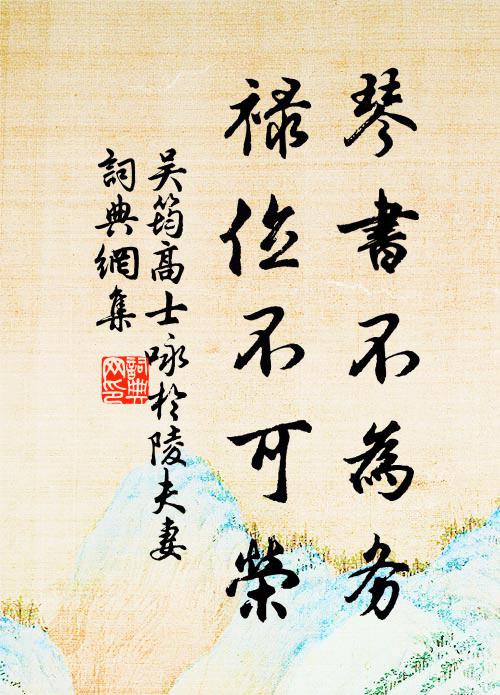 琴書不為务
禄位不可榮
吴筠高士咏於陵夫妻
詞典網集
詞典
网印